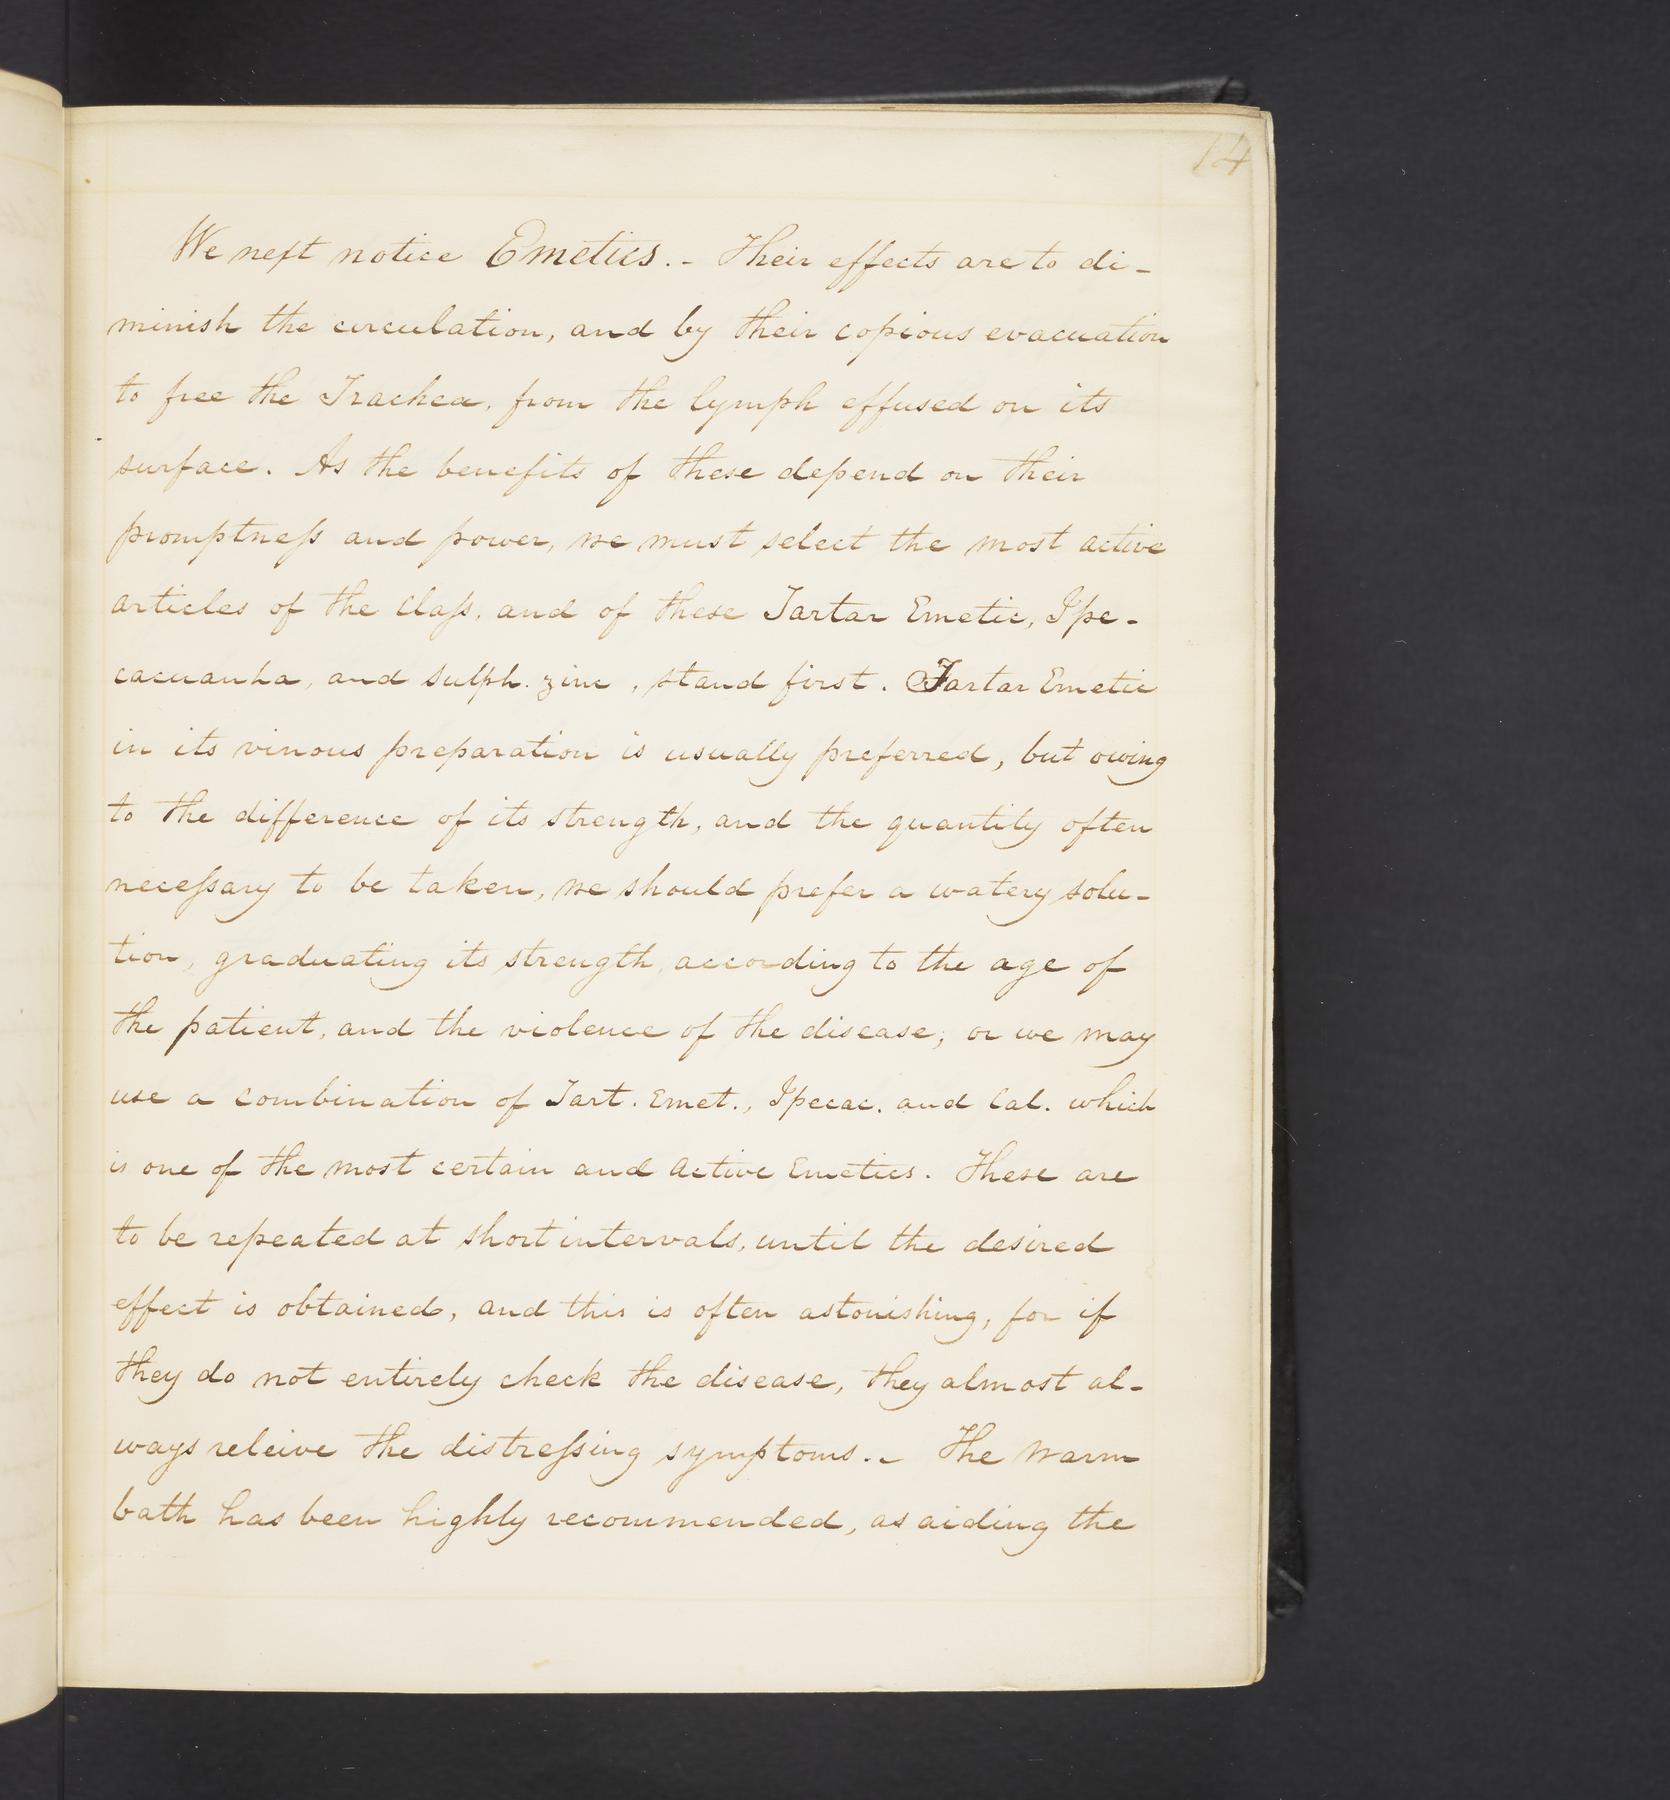 14
We next notice Emetics. - Their effects are to di-
minish the circulation, and by their copious evacuation
to free the Trachea, from the lymph effused on its
surface. As the benefits of these depend on their
promptneſs and power, we must select the most active
articles of the claſs, and of these Tartar Emetic, Ipe-
cacuanha, and sulph. zinc, stand first. Tartar Emetic
in its vinous preparation is usually preferred, but owing
to the difference of its strength, and the quantity often
neceſsary to be taken, we should prefer a watery solu-
tion, graduating its strength, according to the age of
the patient, and the violence of the disease; or we may
use a combination of Tart. Emet., Ipecac. and Cal. which
is one of the most certain and active Emetics. These are
to be repeated at short intervals, until the desired
effect is obtained, and this is often astonishing, for if
they do not entirely check the disease, they almost al-
ways releive the distreſsing symptoms. - The warm
bath has been highly recommended, as aiding the